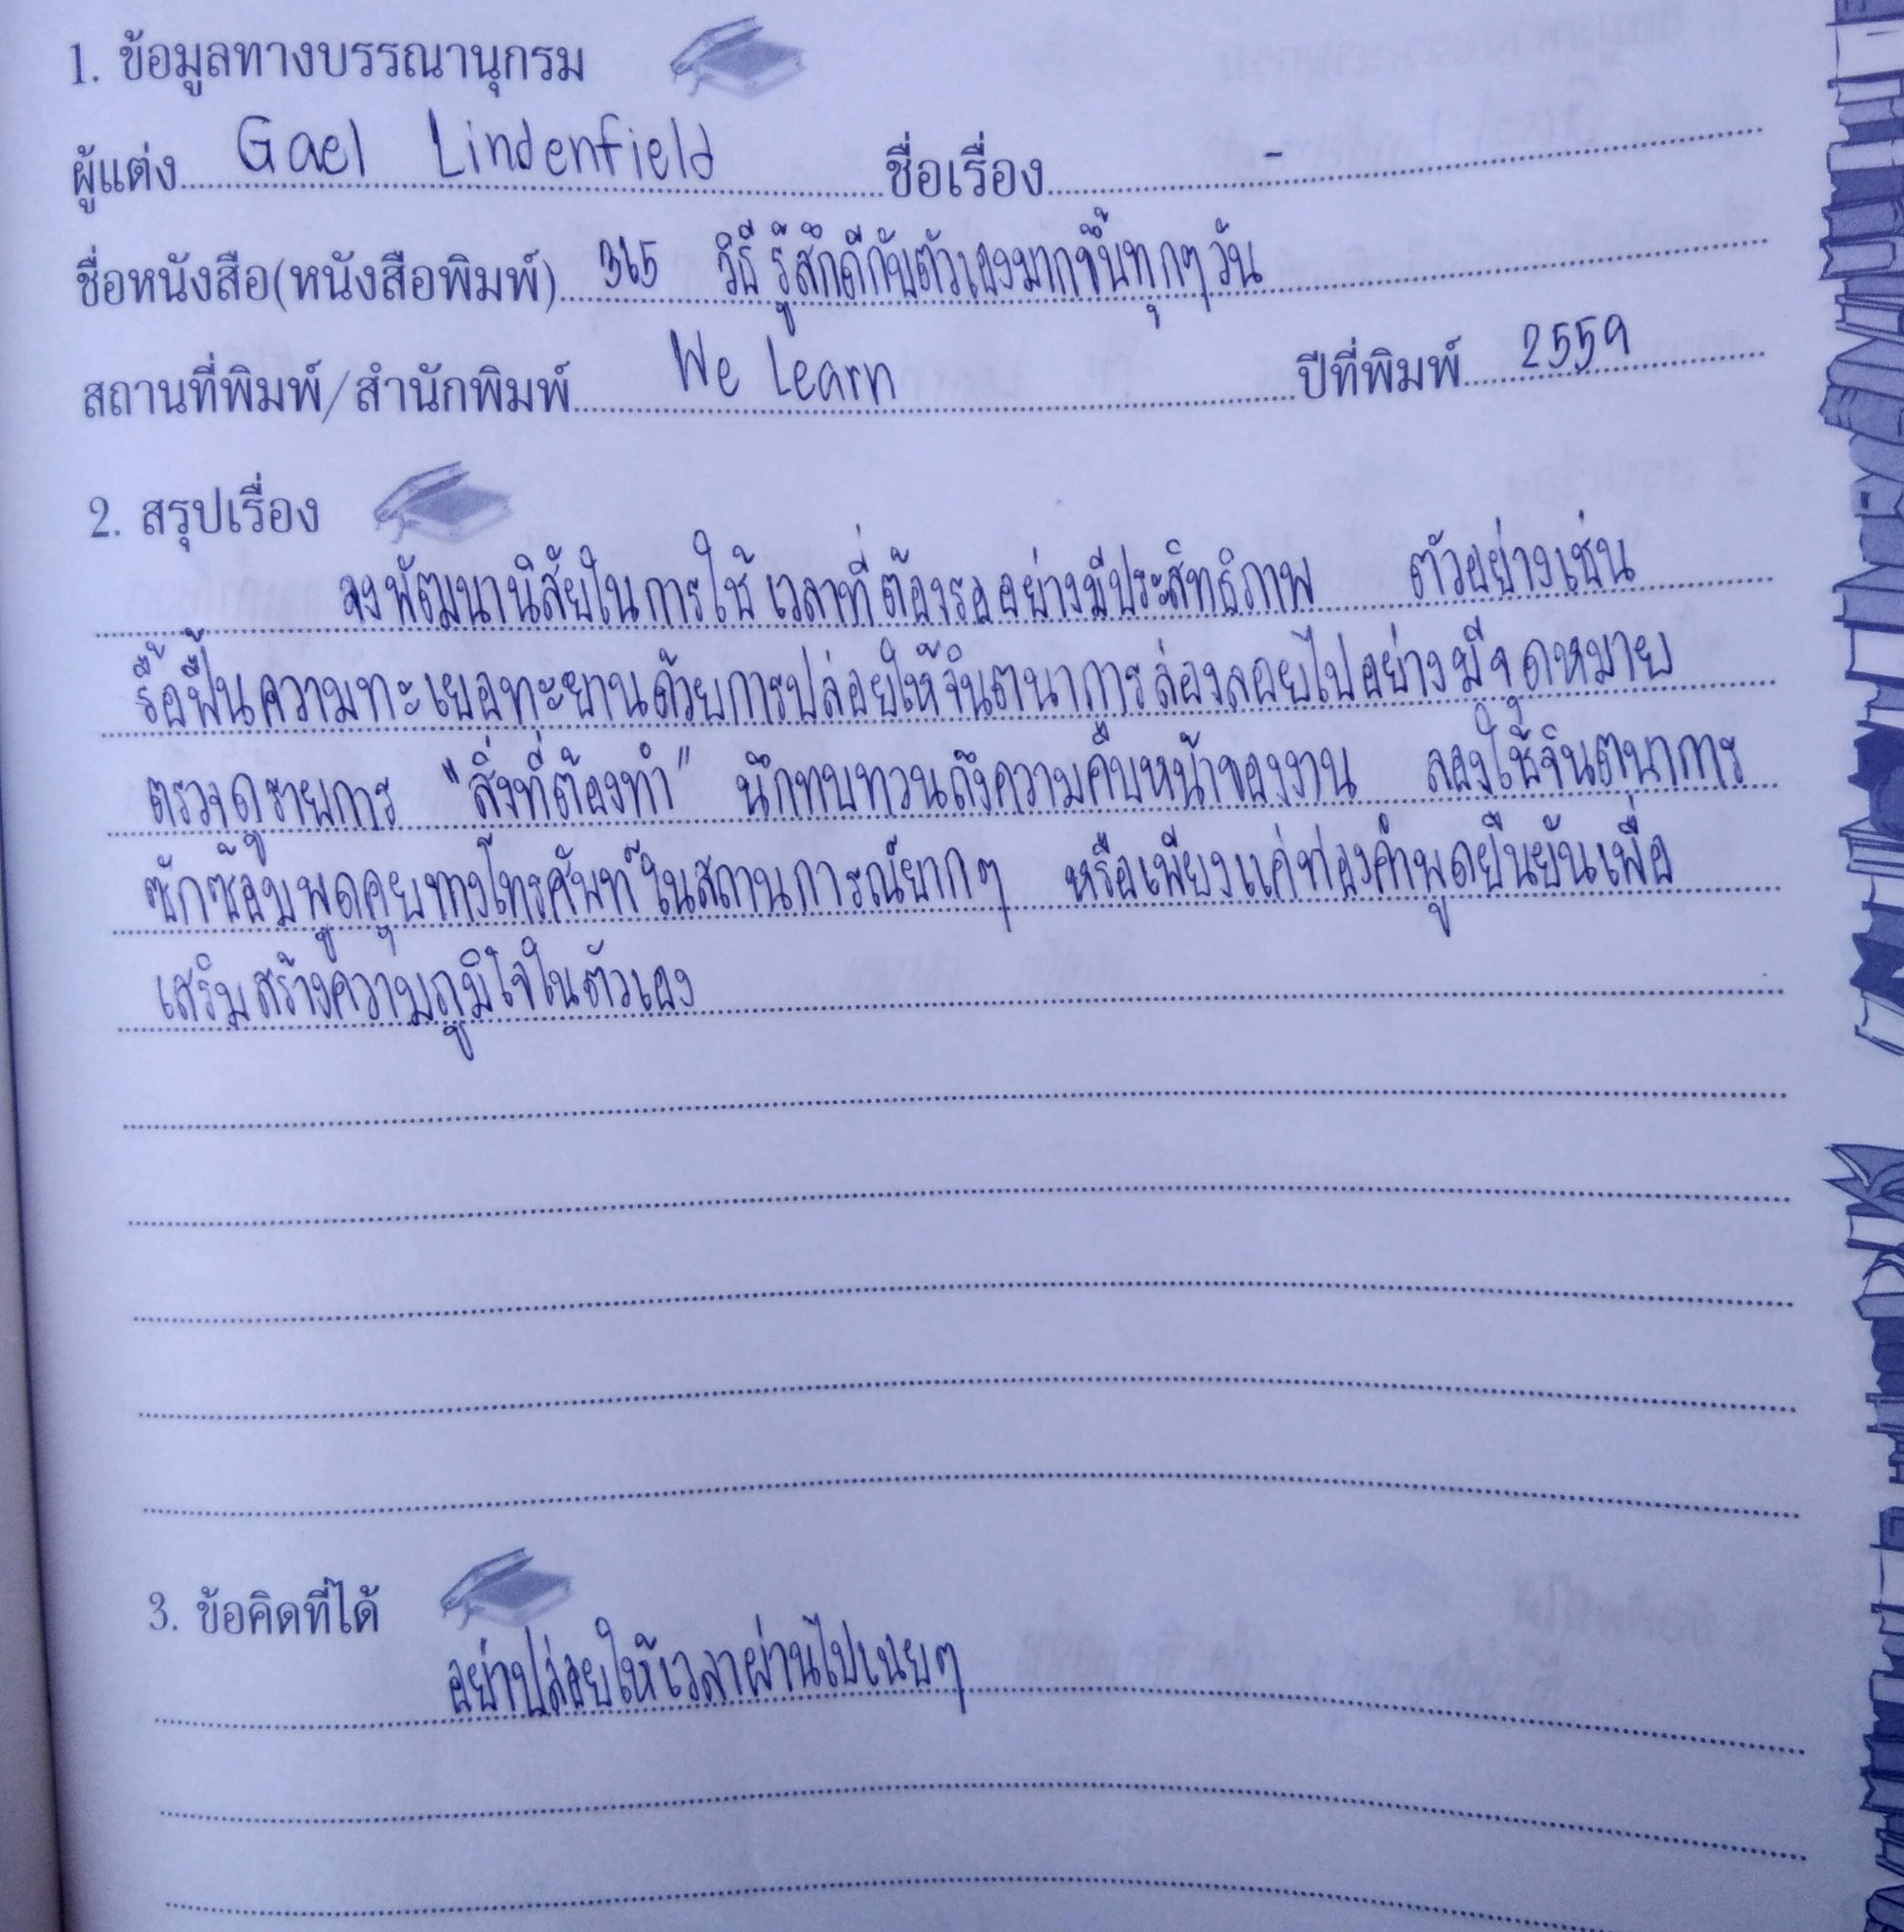 1. ข้อมูลทางบรรณานุกรม
ผู้แต่ง Gael Lindenfield ชื่อเรื่อง -
ชื่อหนังสือ(หนังสือพิมพ์) 365 วิธี รู้สึกดีกับตัวเองมากขึ้นทุกๆวัน
สถานที่พิมพ์/สำนักพิมพ์ We Learn ปีที่พิมพ์ 2559
2. สรุปเรื่อง
จงพัฒนานิสัยในการใช้เวลาที่ต้องรออย่างมีประสิทธิภาพ ตัวอย่างเช่น
รื้อฟื้นความทะเยอทะยานด้วยการปล่อยให้จินตนาการล่องลอยไปอย่างมีจุดหมาย
ตรวจดูรายการ "สิ่งที่ต้องทำ" นึกทบทวนถึงความคืบหน้าของงาน ลองใช้จินตนาการ
ซักซ้อมพูดคุยทางโทรศัพท์ในสถานการณ์ยากๆ หรือเพียงแค่ท่องคำพูดยืนยันเพื่อ
เสริมสร้างความภูมิใจในตัวเอง
3. ข้อคิดที่ได้
อย่าปล่อยให้เวลาผ่านไปเฉยๆ